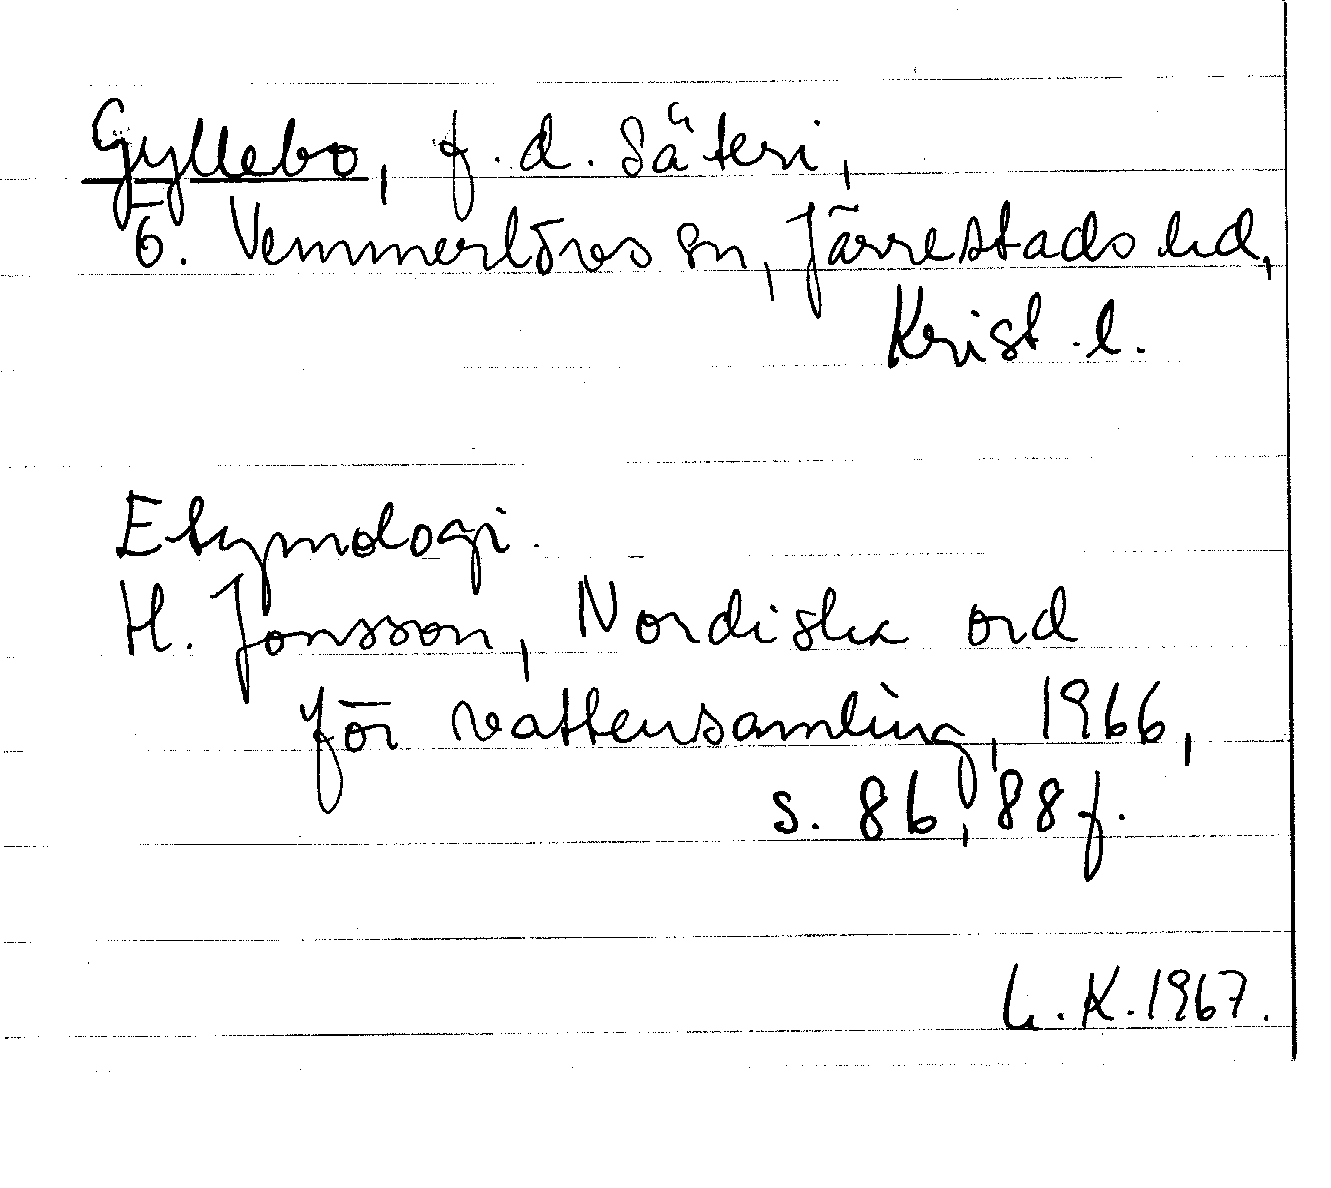 Gyllebo, f.d. Säteri,
Ö. Vemmerlövs sn, Järrestads hd,
Krist. l.
Etymologi.
H. Jonsson, Nordiska ord
för vattensamling, 1966,
s. 86, 88 f.
L.K. 1967.